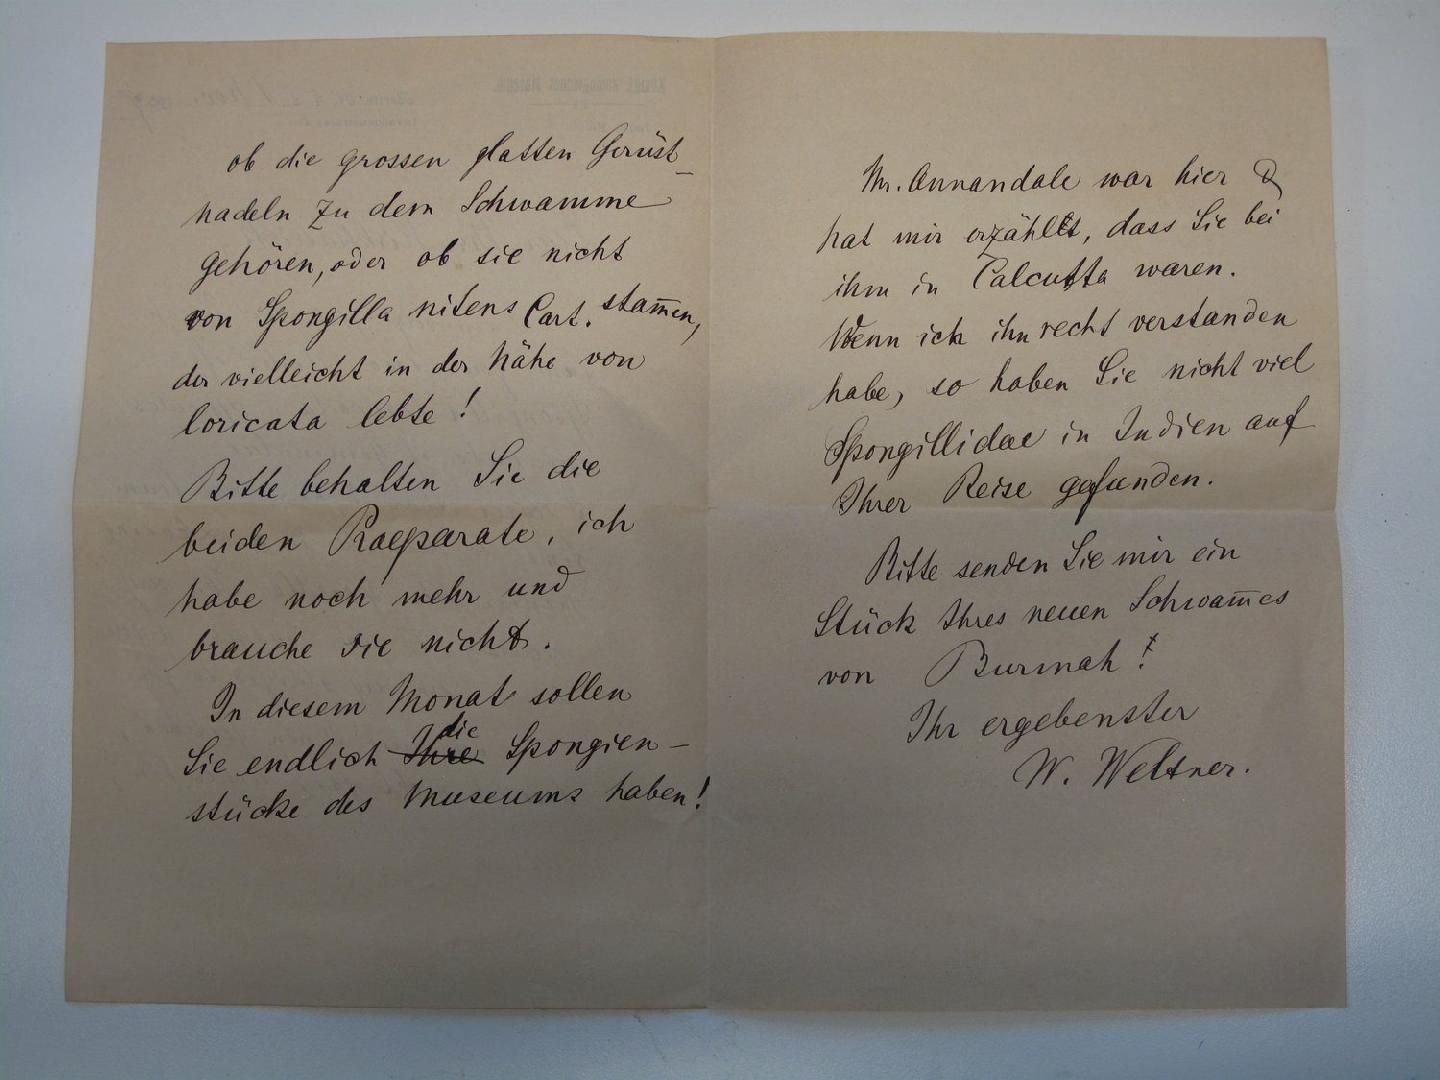 ob die grossen glatten Gerüst-
nadeln zu dem Schwamme
gehören, oder ob sie nicht
von Spongilla nitens Cart. stam̅en,
der vielleicht in der Nähe von
loricata lebte!
Bitte behalten Sie die
beiden Praeparate, ich
habe noch mehr und
brauche sie nicht.
In diesem Monat sollen
Sie endlich Ihre die Spongien-
stücke des Museums haben!
Mr. Annandale war hier &
hat mir erzählt, dass Sie bei
ihm in Calcutta waren.
Wenn ich ihn recht verstanden
habe, so haben Sie nicht viel
Spongillidae in Indien auf
Ihrer Reise gefunden.
Bitte senden Sie mir ein
Stück Ihres neuen Schwam̅es
von Burmah!
Ihr ergebenster
W. Weltner.